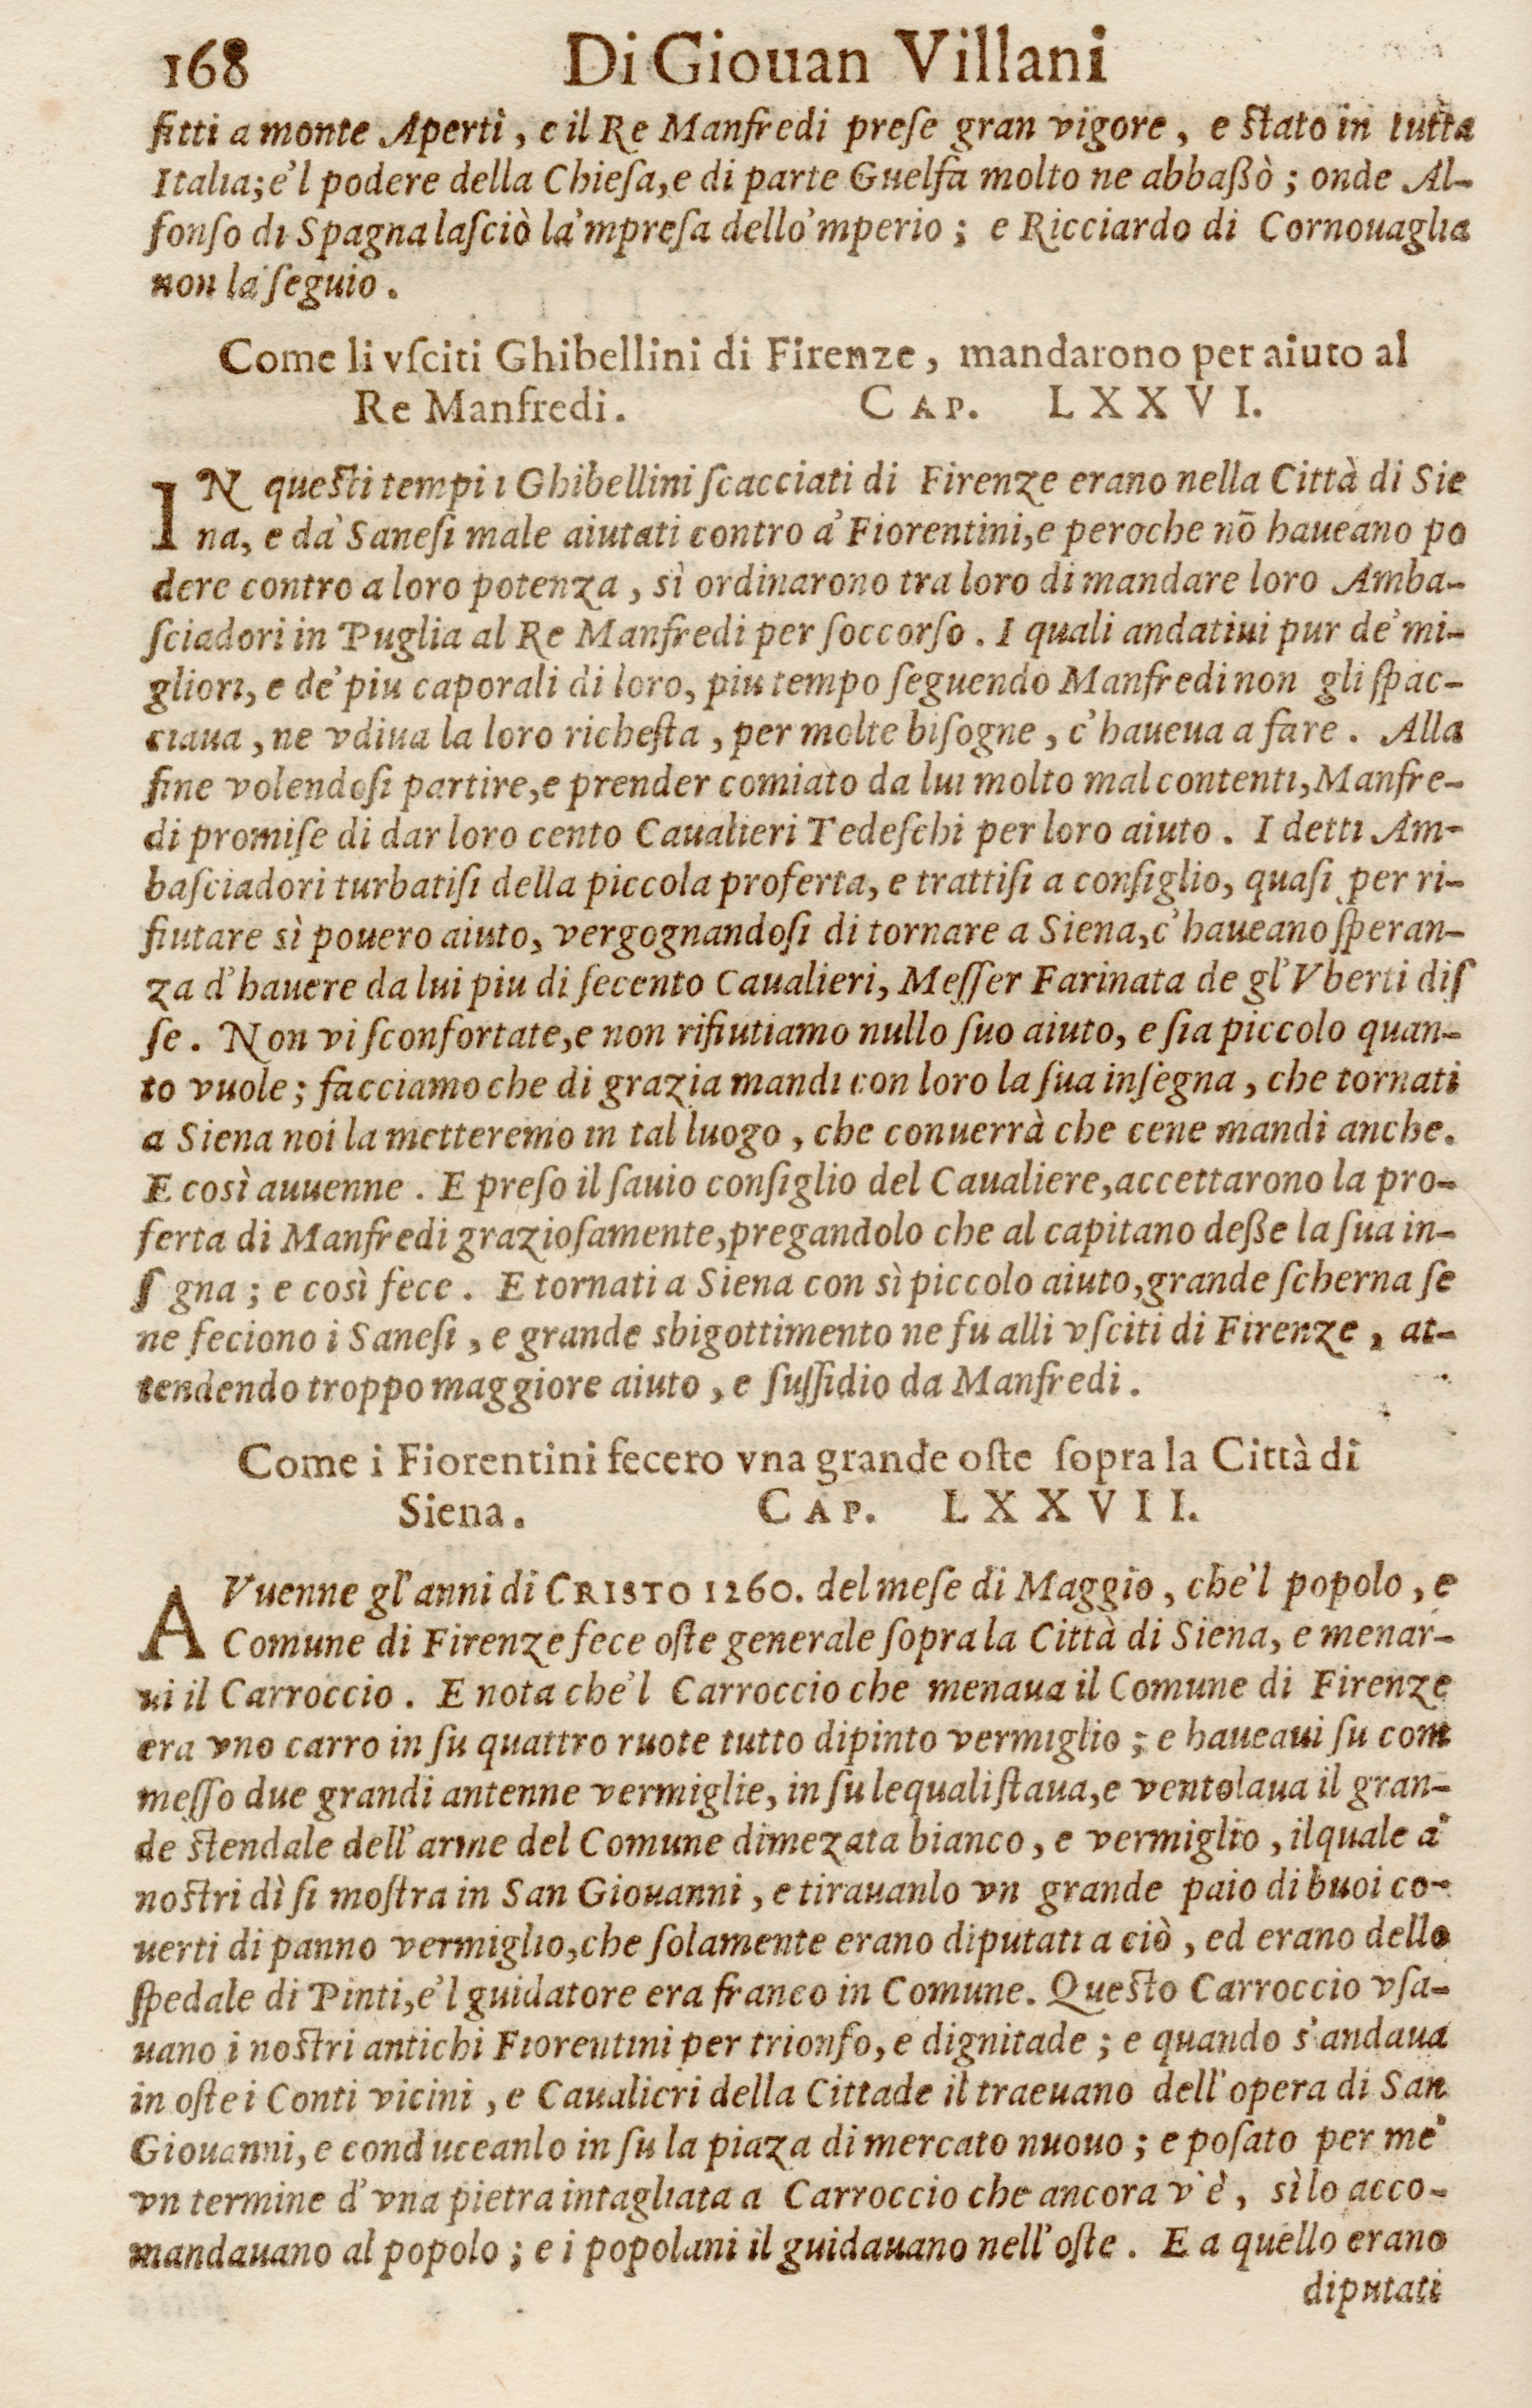 168 Di Giouan Villani
fitti a monte Aperti, e il Re Manfredi preſe gran vigore, e ſtato in tutta
Italia; e'l podere della Chieſa, e di parte Guelfa molto ne abbaſsò; onde Al-
fonſo di Spagna laſciò la'mpreſa dello'mperio; e Ricciardo di Cornouaglia
non la ſeguio.
Come li vſciti Ghibellini di Firenze, mandarono per aiuto al
Re Manfredi. CAP. LXXVI.
IN queſti tempi i Ghibellini ſcacciati di Firenze erano nella Città di Sie
na, e da' Saneſi male aiutati contro a' Fiorentini, e peroche nō haueano po
dere contro a loro potenza, sì ordinarono tra loro di mandare loro Amba-
ſciadori in Puglia al Re Manfredi per ſoccorſo. I quali andatiui pur de' mi-
gliori, e de' piu caporali di loro, piu tempo ſeguendo Manfredi non gli ſpac-
ciaua, ne vdiua la loro richeſta, per molte biſogne, c'haueua a fare. Alla
fine volendoſi partire, e prender comiato da lui molto mal contenti, Manfre-
di promiſe di dar loro cento Caualieri Tedeſchi per loro aiuto. I detti Am-
baſciadori turbatiſi della piccola proferta, e trattiſi a conſiglio, quaſi per ri-
fiutare sì pouero aiuto, vergognandoſi di tornare a Siena, c'haueano ſperan-
za d'hauere da lui piu di ſecento Caualieri, Meſſer Farinata de gl'Vberti diſ
ſe. Non vi ſconfortate, e non rifiutiamo nullo ſuo aiuto, e ſia piccolo quan-
to vuole; facciamo che di grazia mandi con loro la ſua inſegna, che tornati
a Siena noi la metteremo in tal luogo, che conuerrà che cene mandi anche.
E così auuenne. E preſo il ſauio conſiglio del Caualiere, accettarono la pro-
ferta di Manfredi grazioſamente, pregandolo che al capitano deſse la ſua in-
ſ gna; e così fece. E tornati a Siena con sì piccolo aiuto, grande ſcherna ſe
ne feciono i Saneſi, e grande sbigottimento ne fu alli vſciti di Firenze, at-
tendendo troppo maggiore aiuto, e ſuſſidio da Manfredi.
Come i Fiorentini fecero vna grande oſte ſopra la Città di
Siena. CAP. LXXVII.
AVuenne gl'anni di CRISTO 1260. del meſe di Maggio, che'l popolo, e
Comune di Firenze fece oſte generale ſopra la Città di Siena, e menar-
ui il Carroccio. E nota che'l Carroccio che menaua il Comune di Firenze
era vno carro in ſu quattro ruote tutto dipinto vermiglio; e haueaui ſu com
meſſo due grandi antenne vermiglie, in ſu lequali ſtaua, e ventolaua il gran-
de ſtendale dell'arme del Comune dimezata bianco, e vermiglio, ilquale a'
noſtri dì ſi moſtra in San Giouanni, e tirauanlo vn grande paio di buoi co-
uerti di panno vermiglio, che ſolamente erano diputati a ciò, ed erano dello
ſpedale di Pinti, e'l guidatore era franco in Comune. Queſto Carroccio vſa-
uano i noſtri antichi Fiorentini per trionfo, e dignitade; e quando s'andaua
in oſte i Conti vicini, e Caualieri della Cittade il traeuano dell'opera di San
Giouanni, e conduceanlo in ſu la piaza di mercato nuouo; e poſato per me'
vn termine d'vna pietra intagliata a Carroccio che ancora v'è, sì lo acco-
mandauano al popolo; e i popolani il guidauano nell'oſte. E a quello erano
diputati